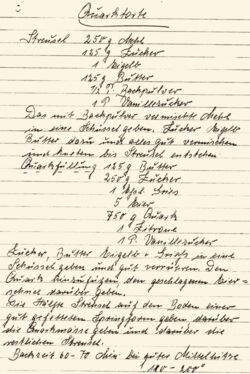 Quarktorte
Streusel 250 g Mehl
125 g Zucker
1 Eigelb
125 g Butter
1/2 P. Backpulver
1 P. Vanillezucker
Das mit Backpulver vermischte Mehl
in eine Schüssel geben. Zucker Eigelb
Butter dazu und alles gut vermischen
und kneten bis Streusel entstehen
Quarkfüllung 125 g Butter
250 g Zucker
1 Eßl Gries
5 Eier
750 g Quark
1 Zitrone
1 P. Vanillezucker
Zucker, Butter Eigelb + Gries in eine
Schüssel geben und gut verrühren. Den
Quark hinzufügen, den geschlagenen Eier-
schnee darüber geben.
Die Hälfte Streusel auf den Boden einer
gut gefetteten Springform geben, darüber
die Quarkmasse geben und darüber die
restlichen Streusel.
Backzeit 60-70 Min. bei guter Mittelhitze